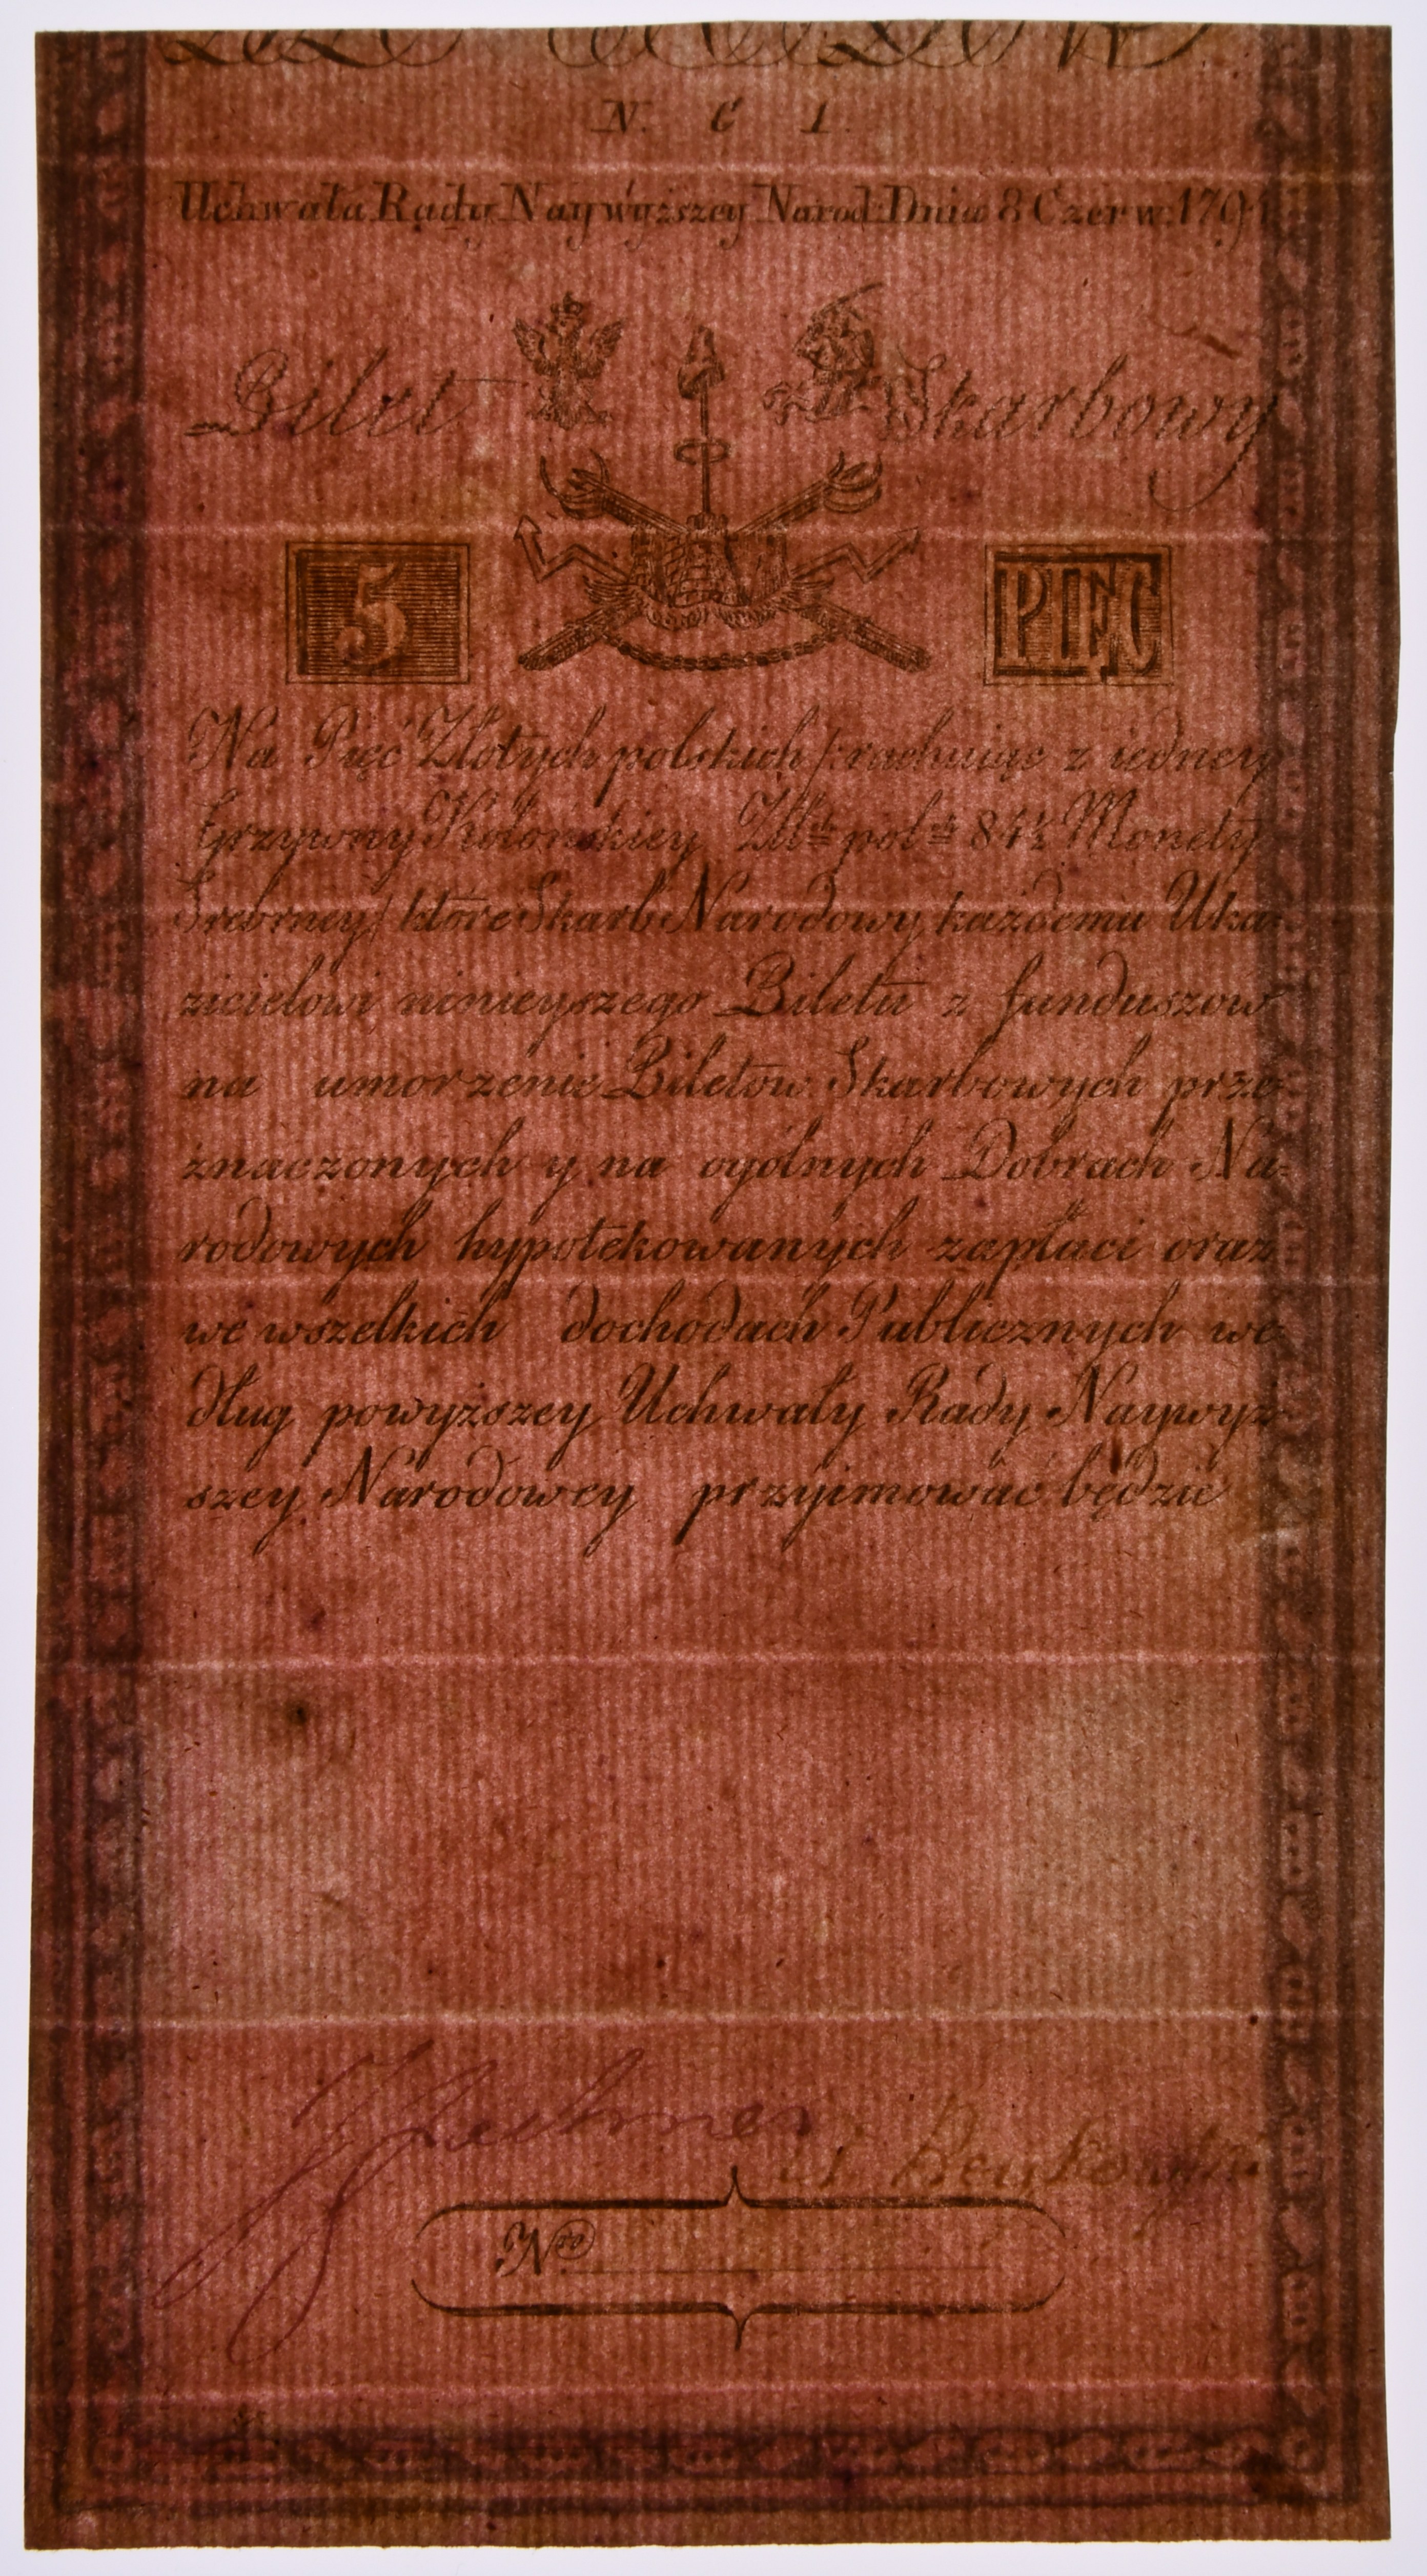 N. C 1.
Uchwała Rady Naywyższey Narod: Dnia 8 Czerw: 179
Bilet Skarbowy
5 PIĘC
Na Pięć Złotych polskich /:rachuiąc z iedney
Grzywny Kolonskiey Złłch pol:ch 84½ Monety
Srebrney:/ które Skarb Narodowy każdemu Uka=
zicielowi ninieyszego Biletu z funduszów
na umorzenie Biletow Skarbowych prze=
znaczonych y na ogólnych Dobrach Na=
rodowych hypotekowanych zapłaci oraz
we wszelkich dochodach Publicznych we=
dług powyższey Uchwały Rady Naywyż=
szey Narodowey przyimować będzie
Nro